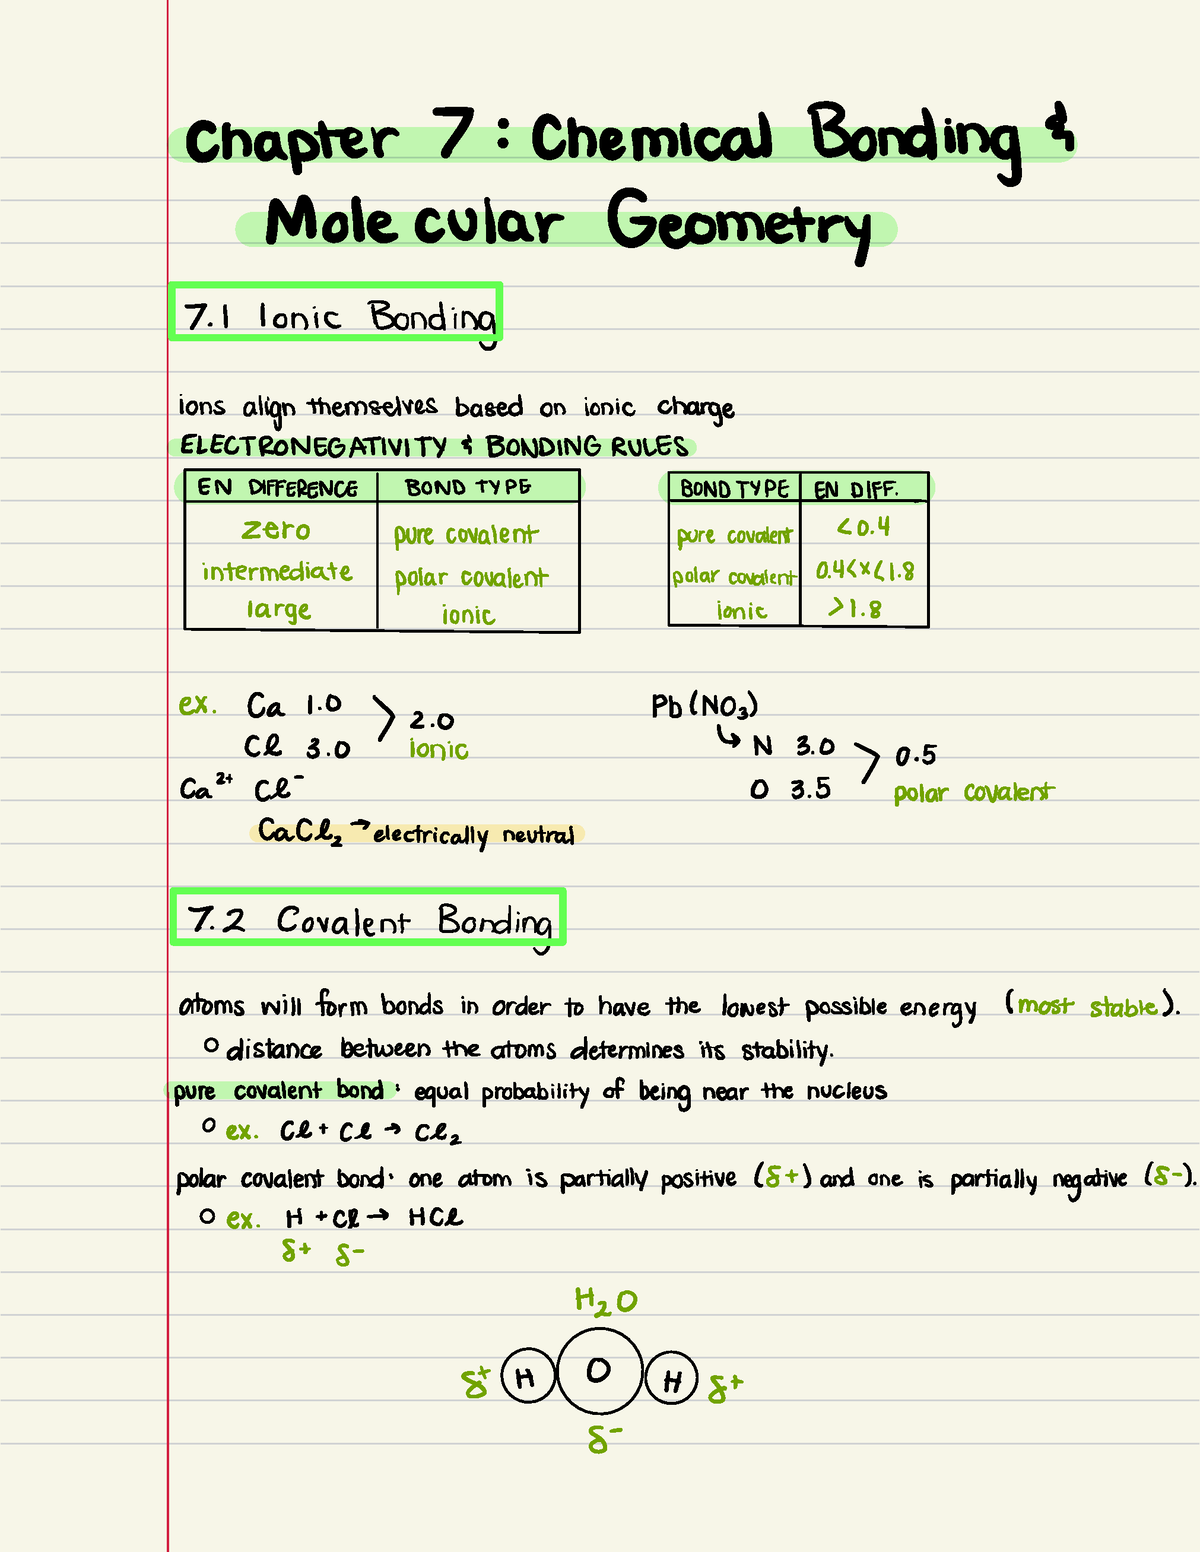 Chapter 7: Chemical Bonding &
Molecular Geometry
7.1 Ionic Bonding
ions align themselves based on ionic charge
ELECTRONEGATIVITY & BONDING RULES
EN DIFFERENCE BOND TYPE
zero pure covalent
intermediate polar covalent
large ionic
BOND TYPE EN DIFF.
pure covalent <0.4
polar covalent 0.4<x<1.8
ionic >1.8
ex. Ca 1.0 > 2.0
Cl 3.0 ionic
Ca²⁺ Cl⁻
CaCl₂ → electrically neutral
Pb(NO₃)
↳ N 3.0 > 0.5
O 3.5 polar covalent
7.2 Covalent Bonding
atoms will form bonds in order to have the lowest possible energy (most stable).
○ distance between the atoms determines its stability.
pure covalent bond: equal probability of being near the nucleus
○ ex. Cl + Cl → Cl₂
polar covalent bond: one atom is partially positive (δ+) and one is partially negative (δ-).
○ ex. H + Cl → HCl
δ+ δ-
H₂O
δ+ H O H δ+
δ-